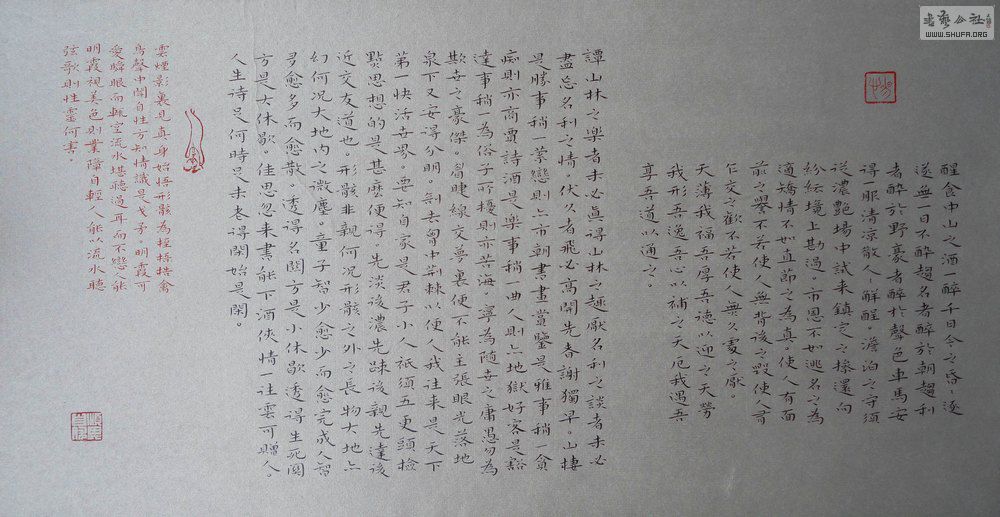 醒食中山之酒一醉千日今之昏逐
逐無一日不醉趨名者醉於朝趨利
者醉於野豪者醉於聲色車馬安
得一服清涼散人人解醒。澹泊之守須
從濃艷場中試來鎮定之操還向
紛紜境上勘過。市恩不如逃名之為
適矯情不如直節之為真。使人有面
前之譽不若使人無背後之毀使人有
乍交之歡不若使人無久處之厭。
天薄我福吾厚吾德以迎之天勞
我形吾逸吾心以補之天厄我遇吾
享吾道以通之。
譚山林之樂者未必真得山林之趣厭名利之談者未必
盡忘名利之情。伏久者飛必高開先者謝獨早。山棲
是勝事稍一縈戀則亦市朝書畫賞鑒是雅事稍一貪
痴則亦商賈詩酒是樂事稍一曲人則亦地獄好客是豁
達事稍一為俗子所擾則亦苦海。寧為隨世之庸愚勿為
欺世之豪傑。眉睫線交夢裏便不能主張眼光落地
泉下又安得分明。剖去胸中荊棘以便人我往來是天下
第一快活世界。要知自家是君子小人祇須五更頭撿
點思想的是甚麼便得。先淡後濃先疎後親先達後
近交友道也。形骸非親何況形骸之外之長物大地亦
幻何況大地內之微塵。童子智少愈少而愈完成人智
多愈多而愈散。透得名關方是小休歇透得生死關
方是大休歇。佳思忽來書能下酒俠情一往雲可贈人。
人生待足何時足未老得閑始是閑。
雲煙影裏見真身始悟形骸為桎梏禽
鳥聲中聞自性方知情識是戈矛。明霞可
愛瞬眼而輒空流水堪聽過耳而不戀人能
明霞視美色則業障自輕人人能以流水聽
弦歌則性靈何害。
WWW.SHUFA.ORG